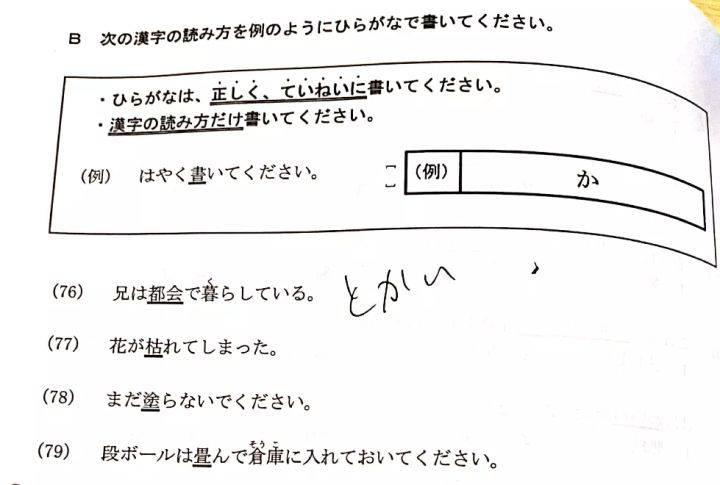 B 次の漢字の読み方を例のようにひらがなで書いてください。
・ひらがなは、正しく、ていねいに書いてください。
・漢字の読み方だけ書いてください。
（例） はやく書いてください。
（例） か
(76) 兄は都会で暮らしている。 とかい
く
(77) 花が枯れてしまった。
(78) まだ塗らないでください。
そうこ
(79) 段ボールは畳んで倉庫に入れておいてください。